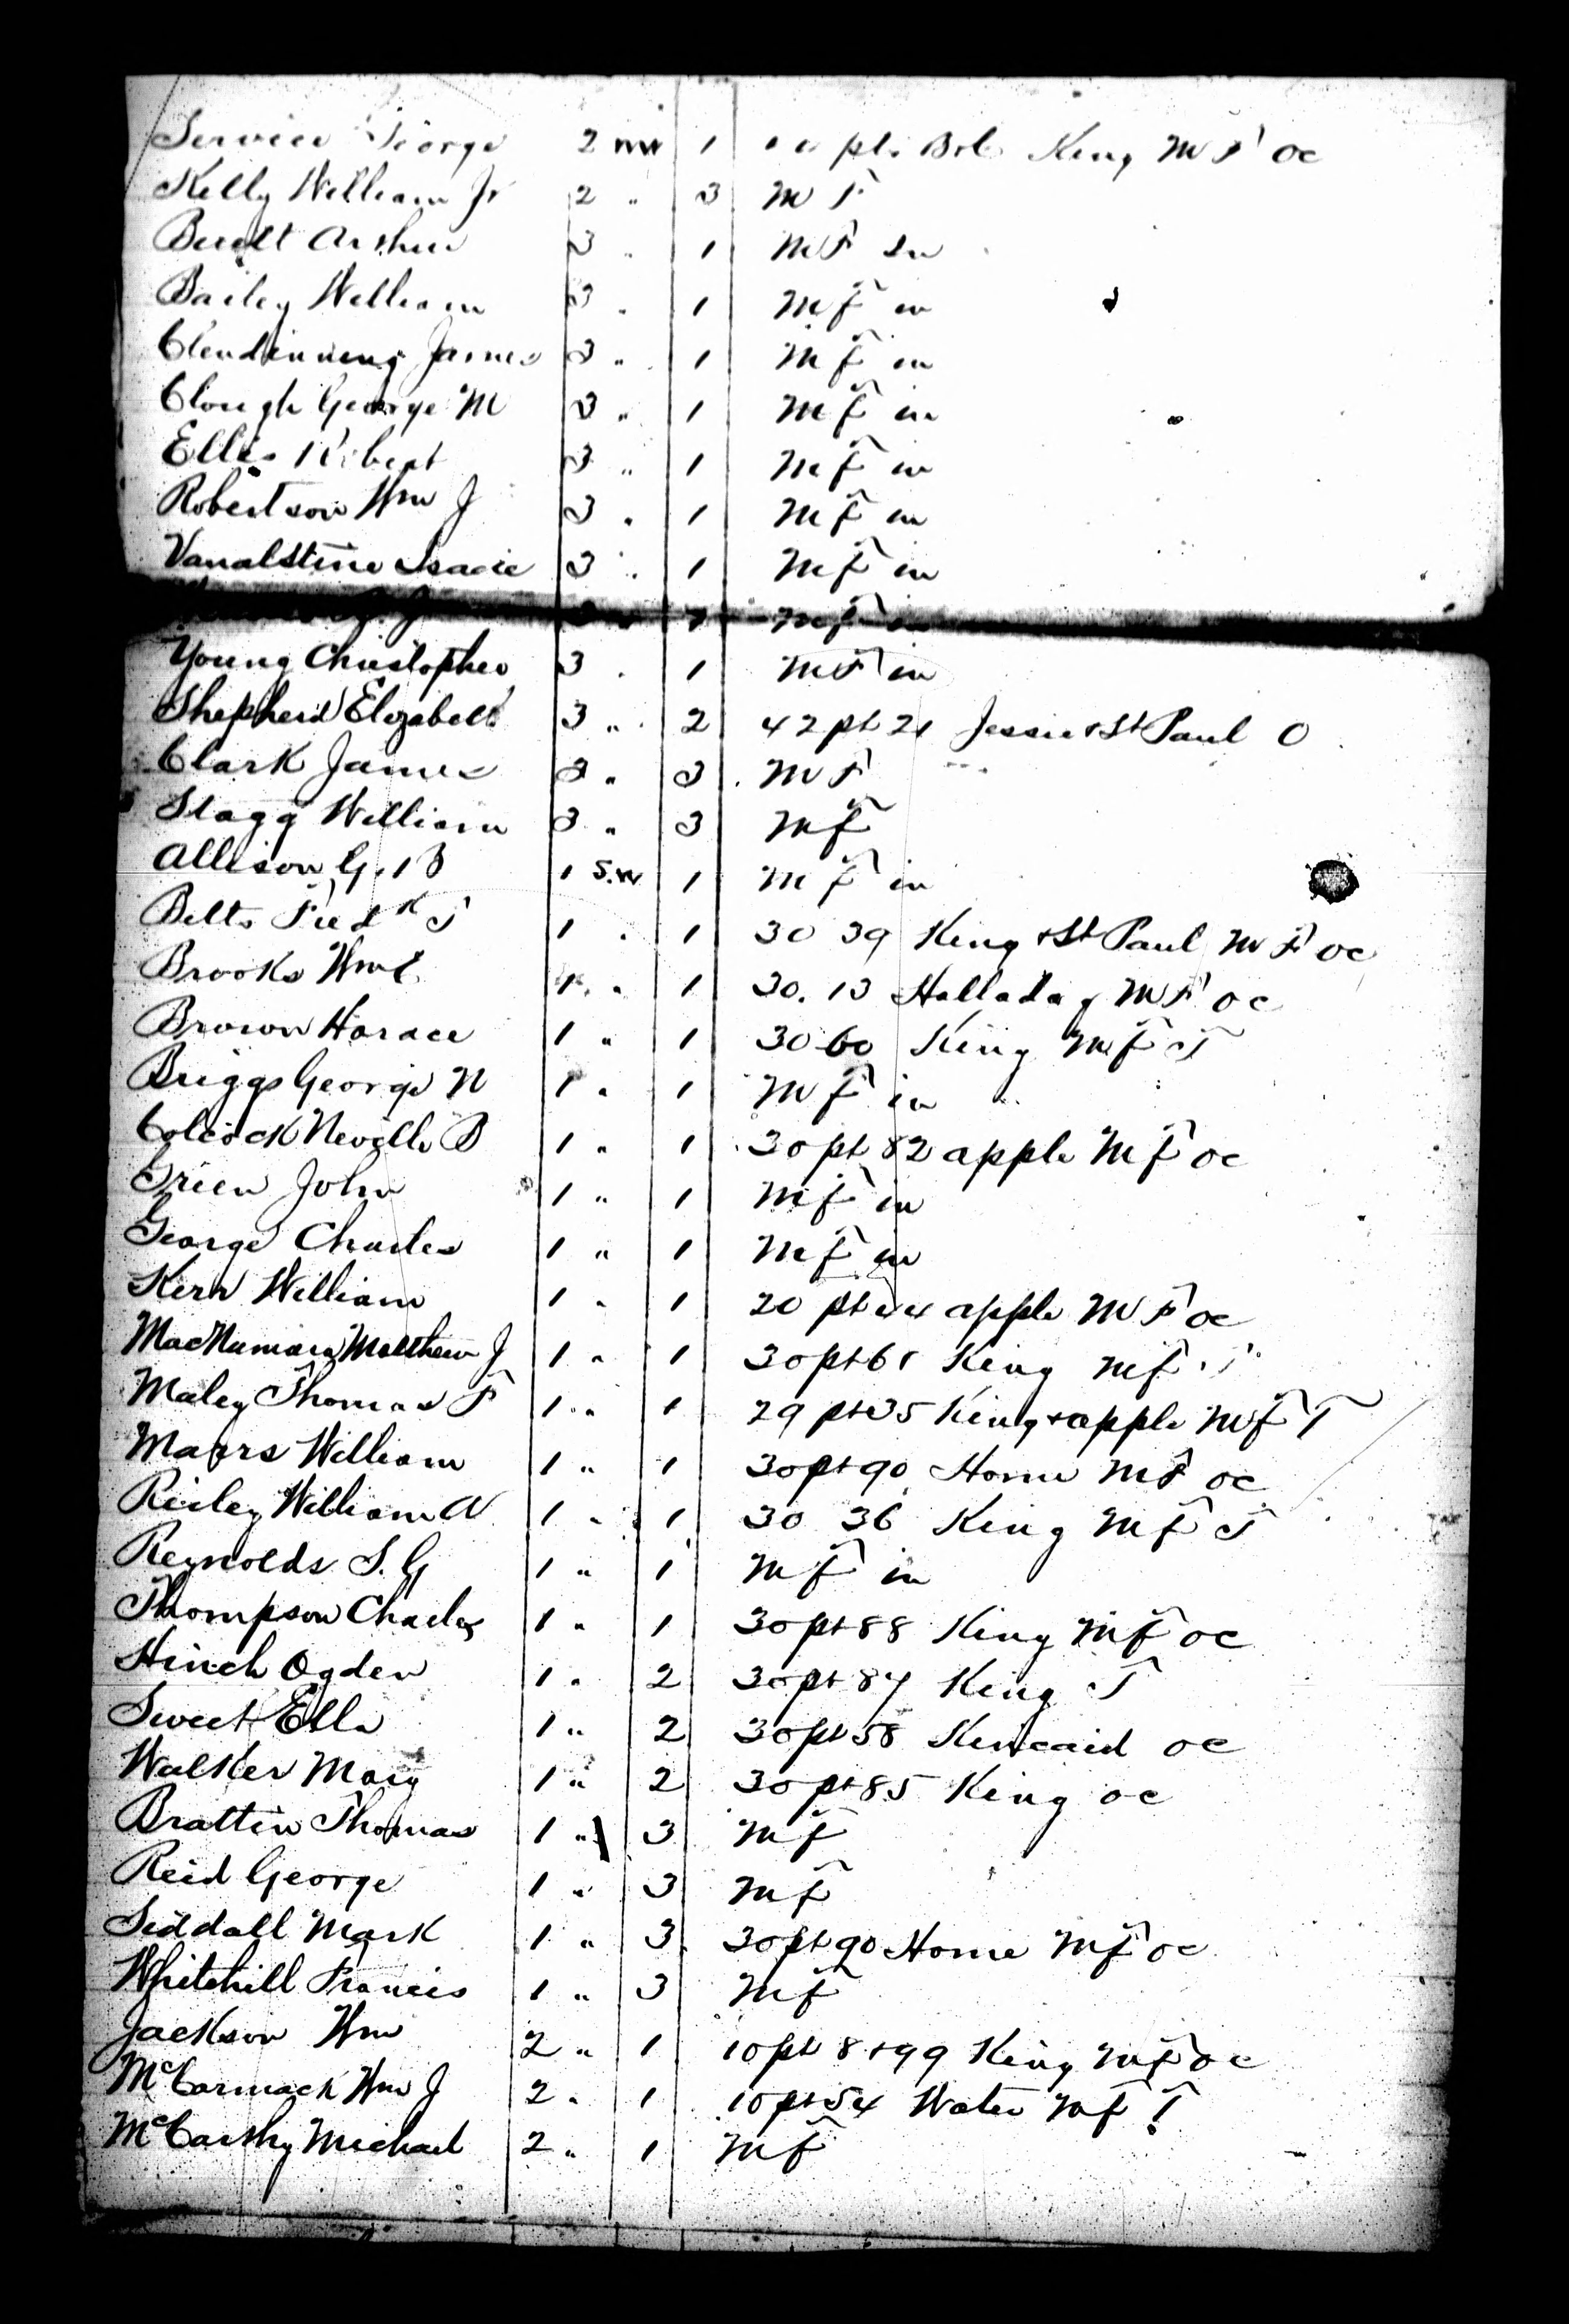 Service George 2 NW 1 pt. King MF oc
Kelly William Jr 2 " 3 MF
Arthur 3 " 1 MF in
Bailey William 3 " 1 MF in
Clendinning James 3 " 1 MF in
Clough George M 3 " 1 MF in
Ellis Robert 3 " 1 MF in
Robertson Wm J 3 " 1 MF in
Vanalstine Isaac 3 " 1 MF in
1 MF in
Young Christopher 3 " 1 MF in
Shepherd Elizabeth 3 " 2 42 pt 21 Jessie & St Paul O
Clark James 3 " 3 MF
Stagg William 3 " 3 MF
Allison G. B 1 S.W 1 MF in
Betts Fredk T 1 " 1 30 39 King & St Paul MF oc
Brooks Wm 1 " 1 30. 13 Halladay MF oc
Brown Horace 1 " 1 30 60 King MF T
Briggs George N 1 " 1 MF in
Colcock Neville B 1 " 1 30 pt 82 apple MF oc
Green John 1 " 1 MF in
George Charles 1 " 1 MF in
Kerr William 1 " 1 20 pt 44 apple MF oc
MacNamara Matthew J 1 " 1 30 pt 61 King MF T
Maley Thomas F 1 " 1 29 pt 35 King & apple MF T
Marrs William 1 " 1 30 pt 90 Home MF oc
Reiley William A 1 " 1 30 36 King MF T
Reynolds S. G 1 " 1 MF in
Thompson Charles 1 " 1 30 pt 88 King MF oc
Hinch Ogden 1 " 2 30 pt 87 King T
Sweet Ella 1 " 2 30 pt 58 Kincaid oc
Walker Mary 1 " 2 30 pt 85 King oc
Brattin Thomas 1 " 3 MF
Reid George 1 " 3 MF
Siddall Mark 1 " 3 30 pt 90 Home MF oc
Whitehill Francis 1 " 3 MF
Jackson Wm 2 " 1 10 pt 8 & 99 King MF oc
McCormack Wm J 2 " 1 10 pt 54 Water MF T
McCarthy Michael 2 " 1 MF